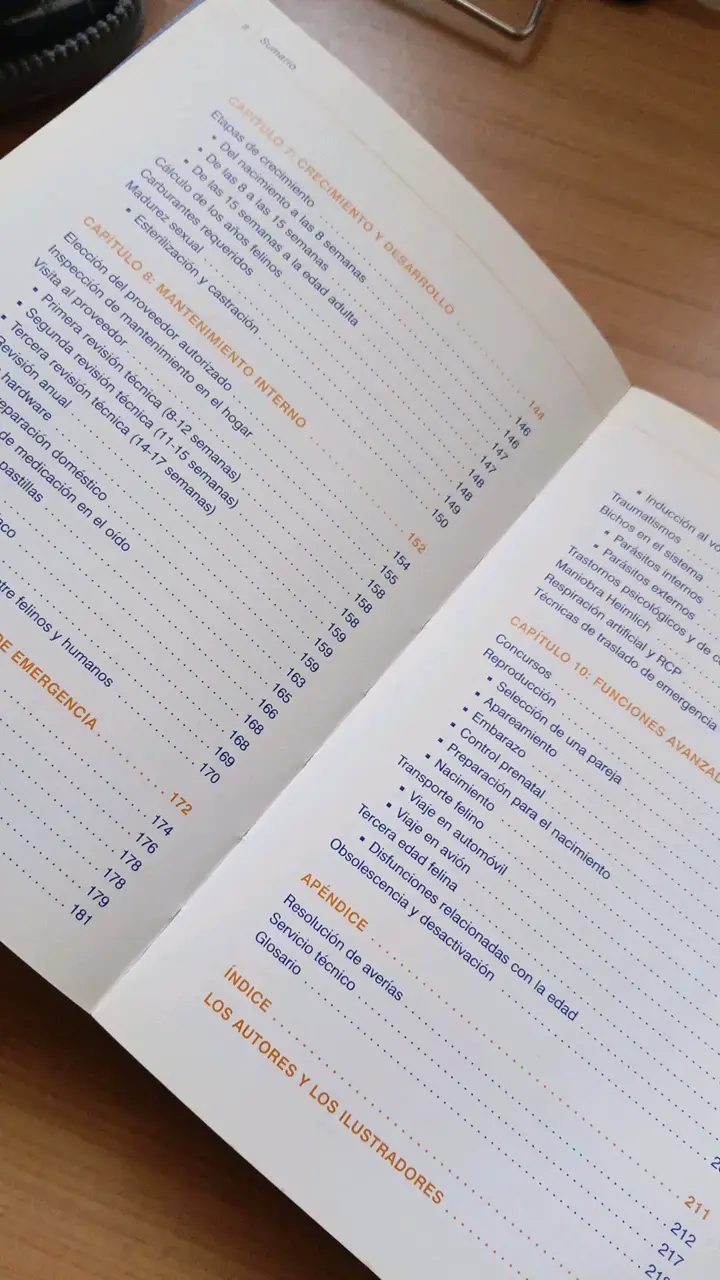 8 Sumario
CAPÍTULO 7: CRECIMIENTO Y DESARROLLO 144
Etapas de crecimiento 146
▪ Del nacimiento a las 8 semanas 146
▪ De las 8 a las 15 semanas 147
▪ De las 15 semanas a la edad adulta 147
Cálculo de los años felinos 148
Carburantes requeridos 148
Madurez sexual 149
▪ Esterilización y castración 150
CAPÍTULO 8: MANTENIMIENTO INTERNO 152
Elección del proveedor autorizado 154
Inspección de mantenimiento en el hogar 155
Visita al proveedor 158
▪ Primera revisión técnica (8-12 semanas) 158
▪ Segunda revisión técnica (11-15 semanas) 159
▪ Tercera revisión técnica (14-17 semanas) 159
Revisión anual 163
hardware 165
doméstico 166
de medicación en el oído 168
pastillas 168
169
felinos y humanos 170
DE EMERGENCIA 172
174
176
178
178
179
181
▪ Inducción al
Traumatismos
Bichos en el sistema
▪ Parásitos internos
▪ Parásitos externos
Trastornos psicológicos y de
Maniobra Heimlich
Respiración artificial y RCP
Técnicas de traslado de emergencia
CAPÍTULO 10: FUNCIONES
Concursos
Reproducción
▪ Selección de una pareja
▪ Apareamiento
▪ Embarazo
▪ Control prenatal
▪ Preparación para el nacimiento
▪ Nacimiento
Transporte felino
▪ Viaje en automóvil
▪ Viaje en avión
Tercera edad felina
▪ Disfunciones relacionadas con la edad
Obsolescencia y desactivación
APÉNDICE 211
Resolución de averías 212
Servicio técnico 217
Glosario
ÍNDICE
LOS AUTORES Y LOS ILUSTRADORES